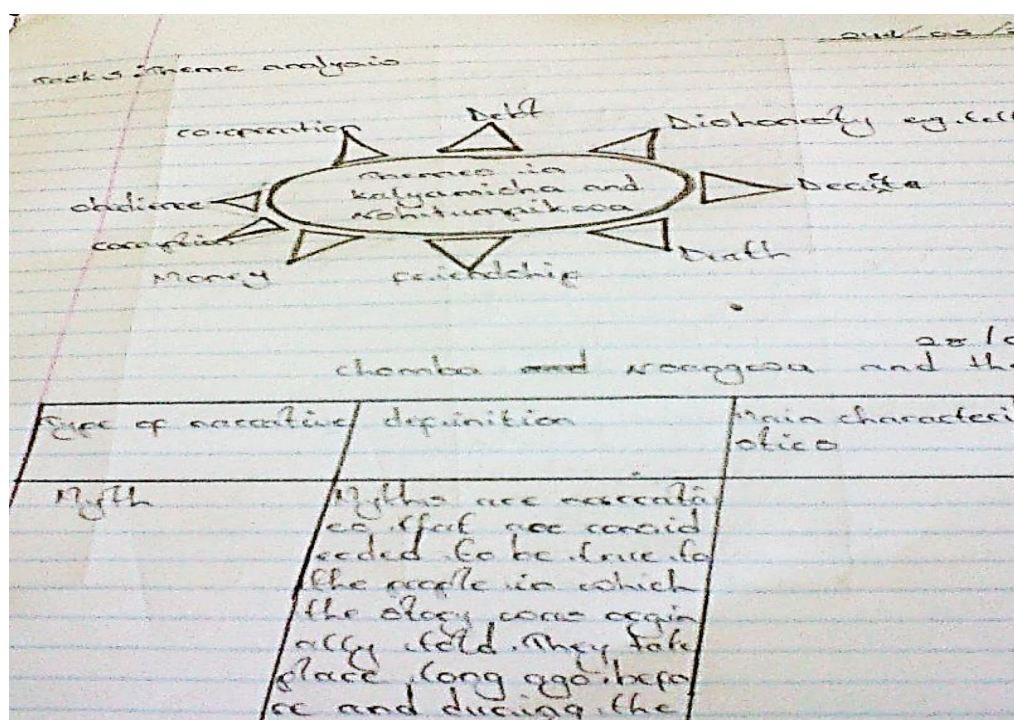 Task 3: Theme analysis
co-operation
Debt
Dishonesty eg. tell
Themes in
kalyamicha and
obidience
Deceite
corruption
Money
Friendship
Death
chomba and and the
Type of narrative
definition
Main characteri
stics
Myth
Myths are narrativ
es that are consid
ereded to be true to
the people in which
the story was orgin
ally told. They take
place long ago befo
re and during the